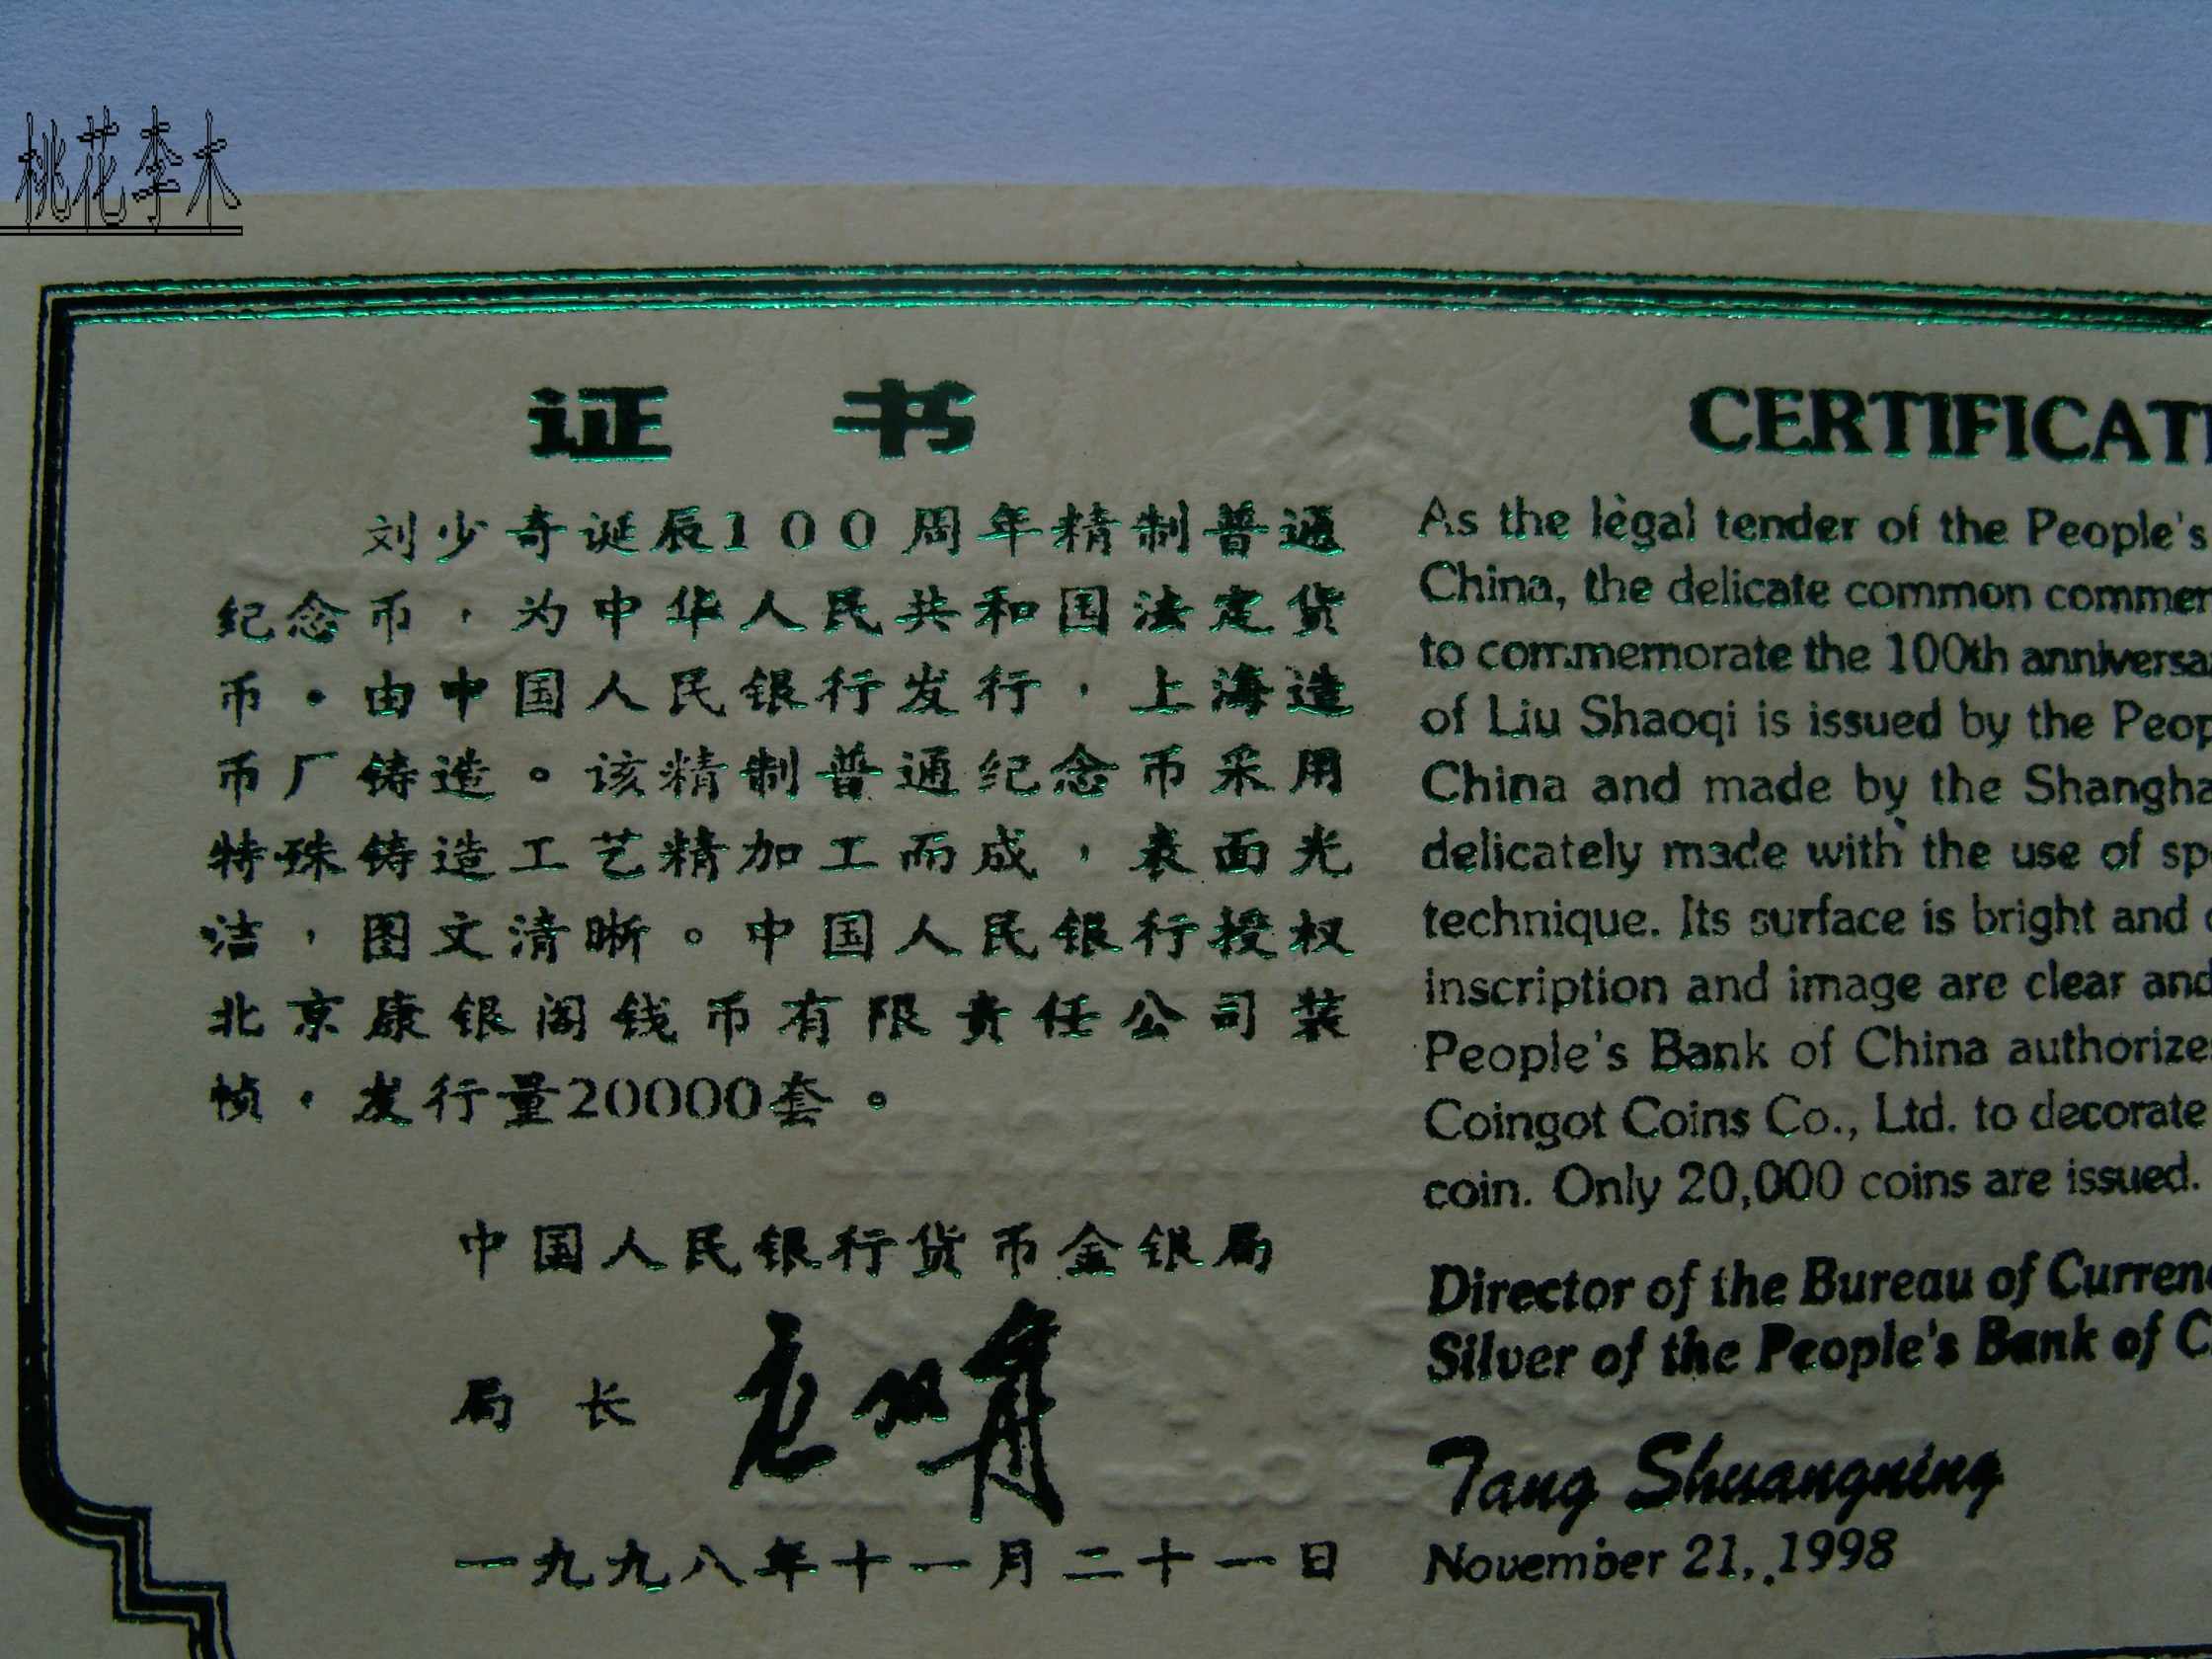 桃花李木
证 书
刘少奇诞辰100周年精制普通
纪念币，为中华人民共和国法定货
币。由中国人民银行发行，上海造
币厂铸造。该精制普通纪念币采用
特殊铸造工艺精加工而成，表面光
洁，图文清晰。中国人民银行授权
北京康银阁钱币有限责任公司装
帧，发行量20000套。
中国人民银行货币金银局
局 长
一九九八年十一月二十一日
CERTIFICAT
As the legal tender of the People's
China, the delicate common commem
to commemorate the 100th anniversa
of Liu Shaoqi is issued by the Peop
China and made by the Shangha
delicately made with the use of sp
technique. Its surface is bright and
inscription and image are clear and
People's Bank of China authorize
Coingot Coins Co., Ltd. to decorate
coin. Only 20,000 coins are issued.
Director of the Bureau of Curren
Silver of the People's Bank of C
Tang Shuangning
November 21, 1998